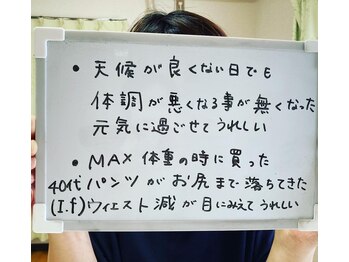 ● 天候が良くない日でも
体調が悪くなる事が無くなった
元気に過ごせてうれしい
● MAX体重の時に買った
パンツがお尻まで落ちてきた
ウィエスト減が目にみえてうれしい
40代
(I.f)